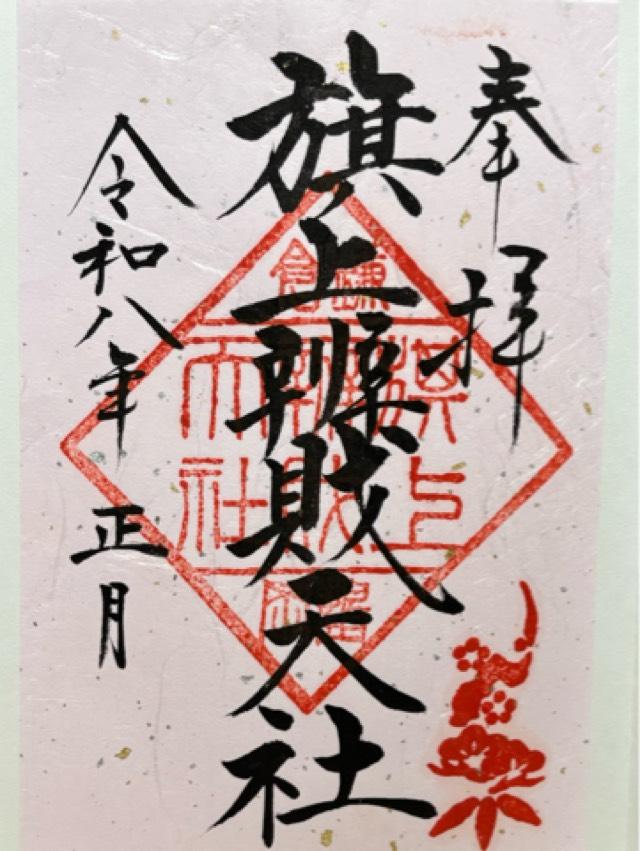 奉拝
旗上辨財天社
令和八年 正月
鎌倉
旗上
辨財
天社